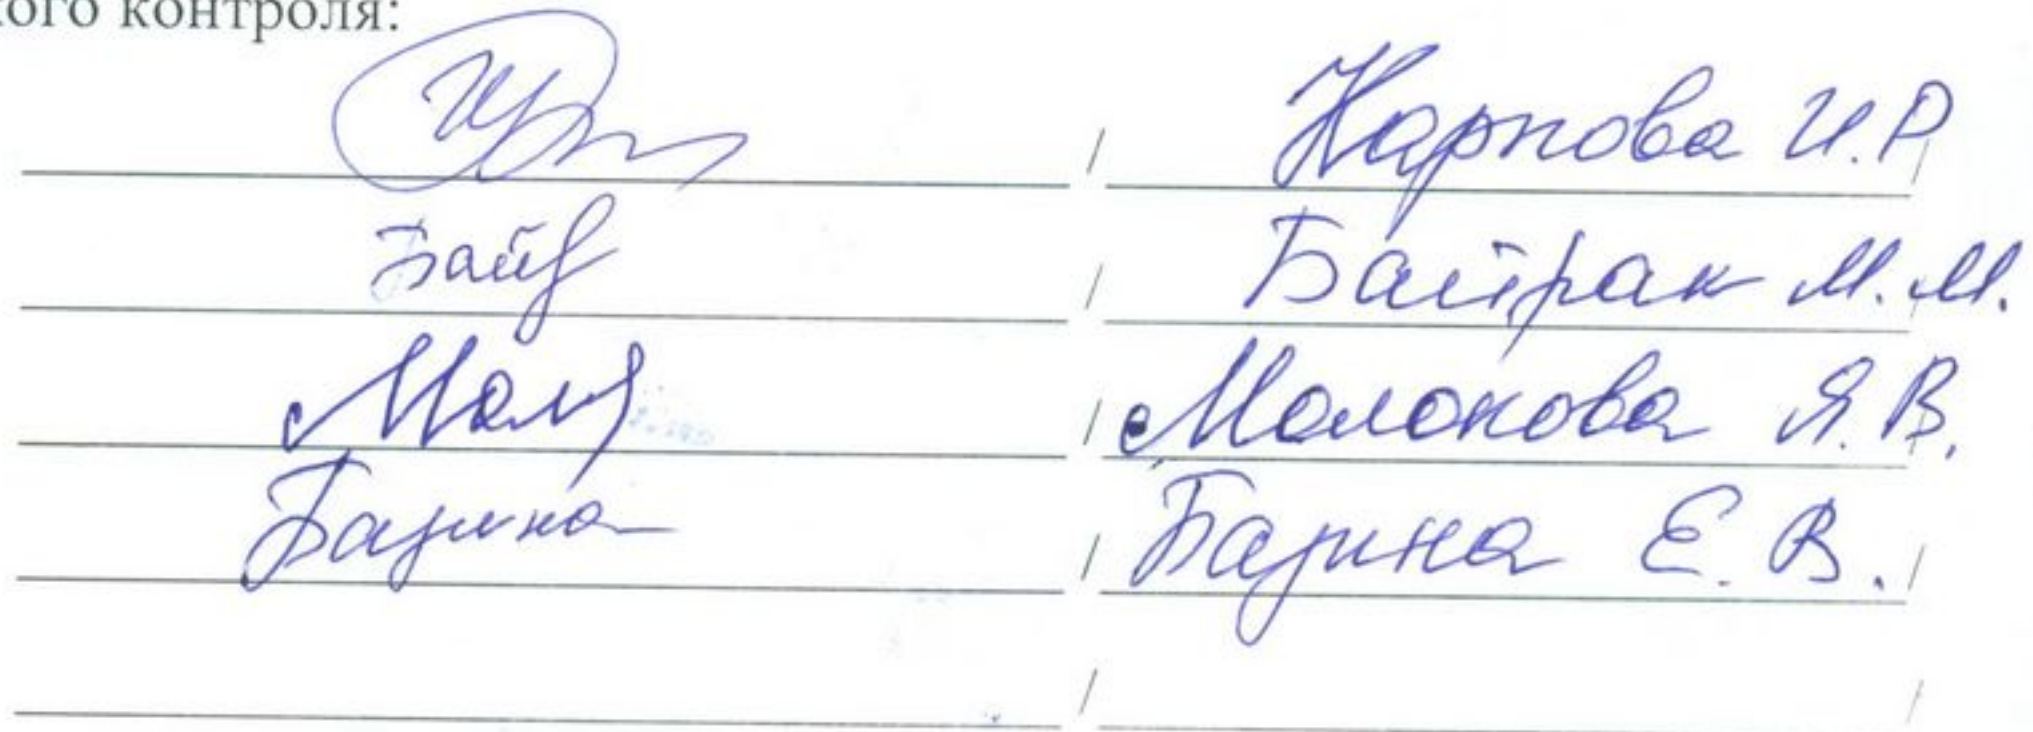 ого контроля:
/ Карпова И.Р /
Байр / Байрак М.М.
Мол / Молокова Я.В. /
Барина / Барина Е.В. /
/ /